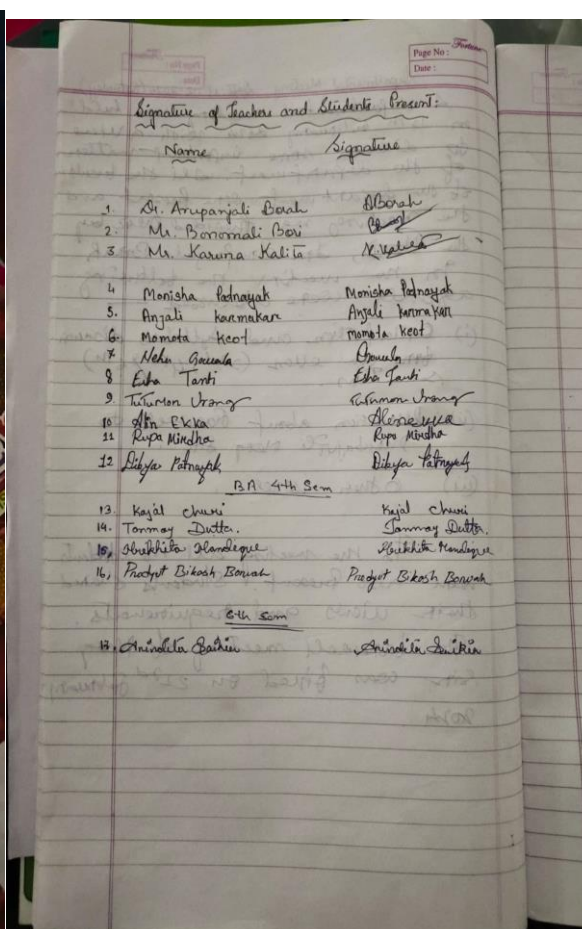 Fortune
Page No :
Date :
Signature of Teachers and Students Present:
Name Signature
1. Dr. Arupanjali Borah ABorah
2. Mr. Bonomali Bori
3 Mr. Karuna Kalita K. Kalita
4 Monisha Patnayak Monisha Patnayak
5. Anjali karmakar Anjali karmakar
6. Momota keot Momota keot
7 Neha Gowala Gowala
8 Esha Tanti Esha Tanti
9. TuTumon Urang TuTumon Urang
10 Alin Ekka Aline
11 Rupa Mirdha Rupa Mirdha
12 Dibya Patnayak Dibya Patnayak
BA 4th Sem
13. Kajal churi Kajal churi
14. Tanmay Dutta. Tanmay Dutta.
15, Handique Handique
16, Pradyut Bikash Boruah Pradyut Bikash Boruah
6th Sem
17. Saikia Saikia